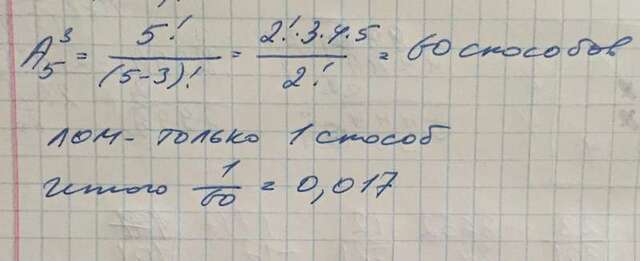 A₅³ = 5! / (5-3)! = 2!·3·4·5 / 2! = 60 способов
лом - только 1 способ
итого 1/60 = 0,017